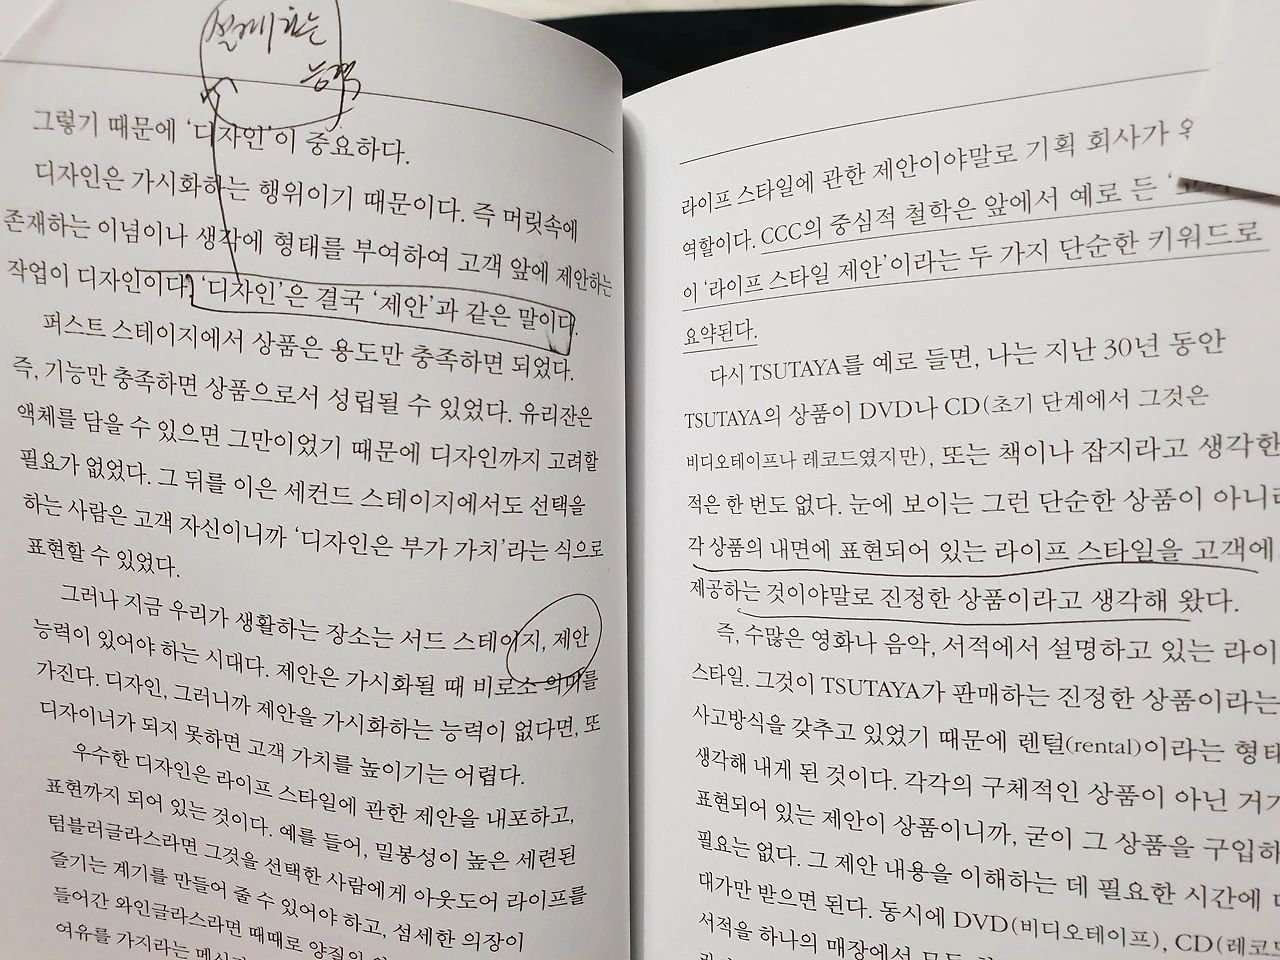 설계하는
능력
그렇기 때문에 ‘디자인’이 중요하다.
디자인은 가시화하는 행위이기 때문이다. 즉 머릿속에
존재하는 이념이나 생각에 형태를 부여하여 고객 앞에 제안하는
작업이 디자인이다. ‘디자인’은 결국 ‘제안’과 같은 말이다.
퍼스트 스테이지에서 상품은 용도만 충족하면 되었다.
즉, 기능만 충족하면 상품으로서 성립될 수 있었다. 유리잔은
액체를 담을 수 있으면 그만이었기 때문에 디자인까지 고려할
필요가 없었다. 그 뒤를 이은 세컨드 스테이지에서도 선택을
하는 사람은 고객 자신이니까 ‘디자인은 부가 가치’라는 식으로
표현할 수 있었다.
그러나 지금 우리가 생활하는 장소는 서드 스테이지, 제안
능력이 있어야 하는 시대다. 제안은 가시화될 때 비로소 의미를
가진다. 디자인, 그러니까 제안을 가시화하는 능력이 없다면, 또
디자이너가 되지 못하면 고객 가치를 높이기는 어렵다.
우수한 디자인은 라이프 스타일에 관한 제안을 내포하고,
표현까지 되어 있는 것이다. 예를 들어, 밀봉성이 높은 세련된
텀블러글라스라면 그것을 선택한 사람에게 아웃도어 라이프를
즐기는 계기를 만들어 줄 수 있어야 하고, 섬세한 의장이
들어간 와인글라스라면 때때로 양질의
여유를 가지라는
라이프 스타일에 관한 제안이야말로 기획 회사가
역할이다. CCC의 중심적 철학은 앞에서 예로 든
이 ‘라이프 스타일 제안’이라는 두 가지 단순한 키워드로
요약된다.
다시 TSUTAYA를 예로 들면, 나는 지난 30년 동안
TSUTAYA의 상품이 DVD나 CD(초기 단계에서 그것은
비디오테이프나 레코드였지만), 또는 책이나 잡지라고 생각한
적은 한 번도 없다. 눈에 보이는 그런 단순한 상품이 아니라
각 상품의 내면에 표현되어 있는 라이프 스타일을 고객에
제공하는 것이야말로 진정한 상품이라고 생각해 왔다.
즉, 수많은 영화나 음악, 서적에서 설명하고 있는 라이
스타일. 그것이 TSUTAYA가 판매하는 진정한 상품이라는
사고방식을 갖추고 있었기 때문에 렌털(rental)이라는 형태
생각해 내게 된 것이다. 각각의 구체적인 상품이 아닌 거기
표현되어 있는 제안이 상품이니까, 굳이 그 상품을 구입하
필요는 없다. 그 제안 내용을 이해하는 데 필요한 시간에
대가만 받으면 된다. 동시에 DVD(비디오테이프), CD(레코드
서적을 하나의 매장에서